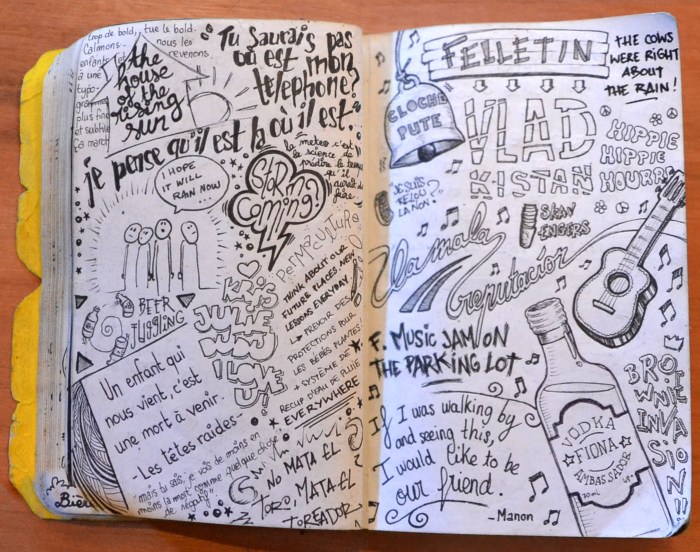 trop de bold, tue le bold.
Calmons
nous les
enfants
revenons
à une
typo
plus fine
et subtile
ça mart
the
house
of the
rising
sun
Tu saurais pas
où est mon
telephone?
je pense qu'il est là où il est.
la méteo c'est
la science de
prédire le temps
qu'il
aurait dû
faire
I HOPE
IT WILL
RAIN NOW...
STORM
COMING!
BEER
JUGGLING
permaculture
THINK ABOUT OUR
FUTURE PLACES, NEW
LESSONS EVERYDAY
PREVOIR DES
PROTECTIONS POUR
LES BÉBÉS PLANTES
+ SYSTÈME DE
RECUP D'EAU DE PLUIE
EVERYWHERE
JULIE
WOU
I LOVE
Un enfant qui
nous vient, c'est
une mort à venir.
-Les têtes raides-
"mais tu sais, je vois de moins en
moins la mort comme quelque chose
de négatif"
NO MATA EL
TORO, MATA EL
TOREADOR
FELLETIN
THE COWS
WERE RIGHT
ABOUT
THE RAIN!
CLOCHE
PUTE
VLAD
KISTAN
HIPPIE
HIPPIE
HOURRA
"JE SUIS
RELOU?
LA NON?"
SKAV
ENGERS
La mala
reputación
F. MUSIC JAM ON
THE PARKING LOT
If I was walking by
and seeing this,
I would like to be
our friend.
-Manon
VODKA
FIONA
AMBASSADOR
70CL
BROWNIE
INVASION!!